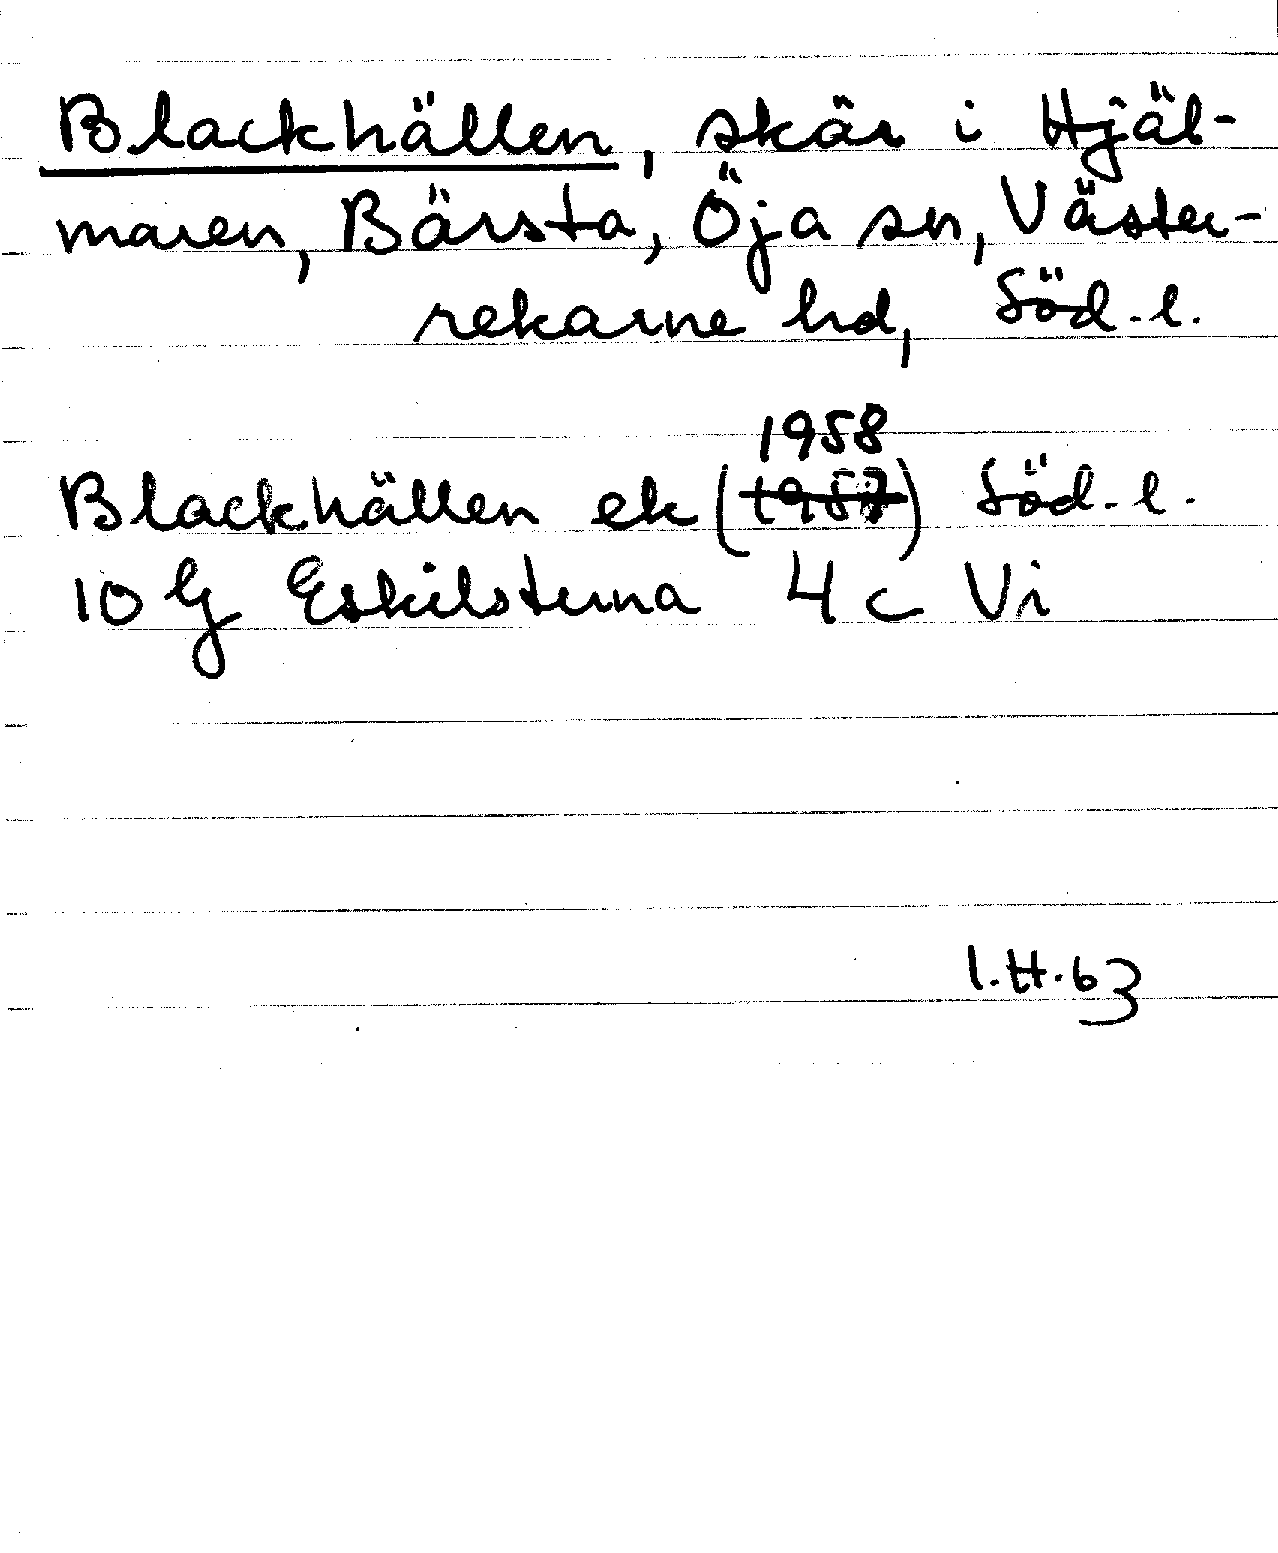 Blackhällen, skär i Hjäl-
maren, Bärsta, Öja sn, Väster-
rekarne hd, Söd. l.
1958
Blackhällen ek (1957) Söd. l.
10 G Eskilstuna 4 c Vi
I.H. 63